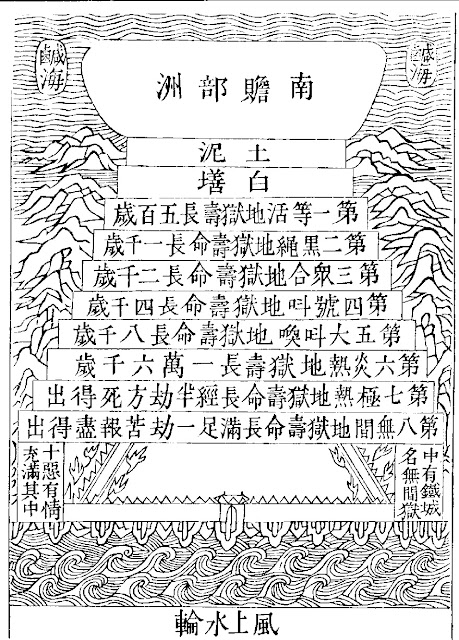 鹹海
鹹海
南贍部洲
土泥
白墡
第一等活地獄壽長五百歲
第二黑繩地獄壽命長一千歲
第三眾合地獄壽命長二千歲
第四號叫地獄壽命長四千歲
第五大叫喚地獄壽命長八千歲
第六炎熱地獄壽長一萬六千歲
第七極熱地獄壽命長經半劫方死得出
第八無間地獄壽命長滿足一劫苦報盡得出
中有鐵城
名無間獄
十惡有情
充滿其中
風上水輪